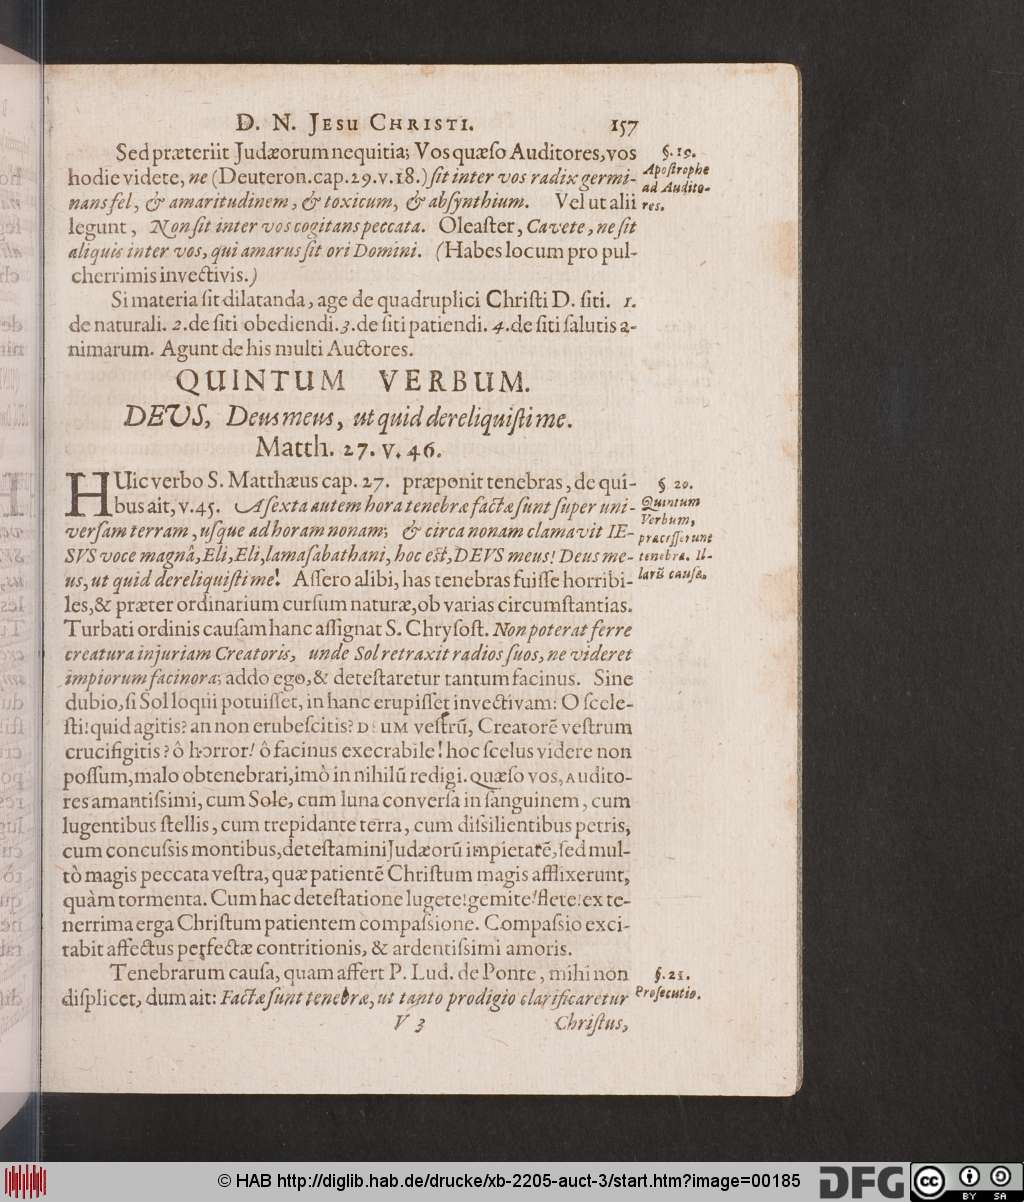 D. N. JESU CHRISTI. 157
Sed præteriit Judæorum nequitia; Vos quæſo Auditores, vos
hodie videte, ne (Deuteron. cap. 29. v. 18.) ſit inter vos radix germi-
nans fel, & amaritudinem, & toxicum, & abſynthium. Vel ut alii
legunt, Non ſit inter vos cogitans peccata. Oleaſter, Cavete, ne ſit
aliquis inter vos, qui amarus ſit ori Domini. (Habes locum pro pul-
cherrimis invectivis.)
§. 19.
Apoſtrophe
ad Audito-
res.
Si materia ſit dilatanda, age de quadruplici Chriſti D. ſiti. 1.
de naturali. 2. de ſiti obediendi. 3. de ſiti patiendi. 4. de ſiti ſalutis a-
nimarum. Agunt de his multi Auctores.
QUINTUM VERBUM.
DEVS, Deus meus, ut quid dereliquiſti me.
Matth. 27. v. 46.
HUic verbo S. Matthæus cap. 27. præponit tenebras, de qui-
bus ait, v. 45. A ſexta autem hora tenebræ factæ ſunt ſuper uni-
verſam terram, uſque ad horam nonam; & circa nonam clamavit IE-
SVS voce magnâ, Eli, Eli, lamaſabathani, hoc eſt, DEVS meus! Deus me-
us, ut quid dereliquiſti me! Aſſero alibi, has tenebras fuiſſe horribi-
les, & præter ordinarium curſum naturæ, ob varias circumſtantias.
Turbati ordinis cauſam hanc aſſignat S. Chryſoſt. Non poterat ferre
creatura injuriam Creatoris, unde Sol retraxit radios ſuos, ne videret
impiorum facinora; addo ego, & deteſtaretur tantum facinus. Sine
dubio, ſi Sol loqui potuiſſet, in hanc erupiſſet invectivam: O ſcele-
ſti! quid agitis? an non erubeſcitis? DEUM veſtrū, Creatorē veſtrum
crucifigitis? ô horror! ô facinus execrabile! hoc ſcelus videre non
poſſum, malo obtenebrari, imò in nihilū redigi. Quæſo vos, Audito-
res amantiſsimi, cum Sole, cum luna converſa in ſanguinem, cum
lugentibus ſtellis, cum trepidante terra, cum diſsilientibus petris,
cum concuſsis montibus, deteſtamini Judæorū impietatē, ſed mul-
tò magis peccata veſtra, quæ patientē Chriſtum magis afflixerunt,
quàm tormenta. Cum hac deteſtatione lugete! gemite! flete! ex te-
nerrima erga Chriſtum patientem compaſsione. Compaſsio exci-
tabit affectus perfectæ contritionis, & ardentiſsimi amoris.
§ 20.
Quintum
Verbum,
præceſſerunt
tenebræ. Il-
larū cauſa.
Tenebrarum cauſa, quam affert P. Lud. de Ponte, mihi non
diſplicet, dum ait: Factæ ſunt tenebræ, ut tanto prodigio clarificaretur
§. 21.
Proſecutio.
V 3 Chriſtus,
© HAB http://diglib.hab.de/drucke/xb-2205-auct-3/start.htm?image=00185
DFG
cc BY SA